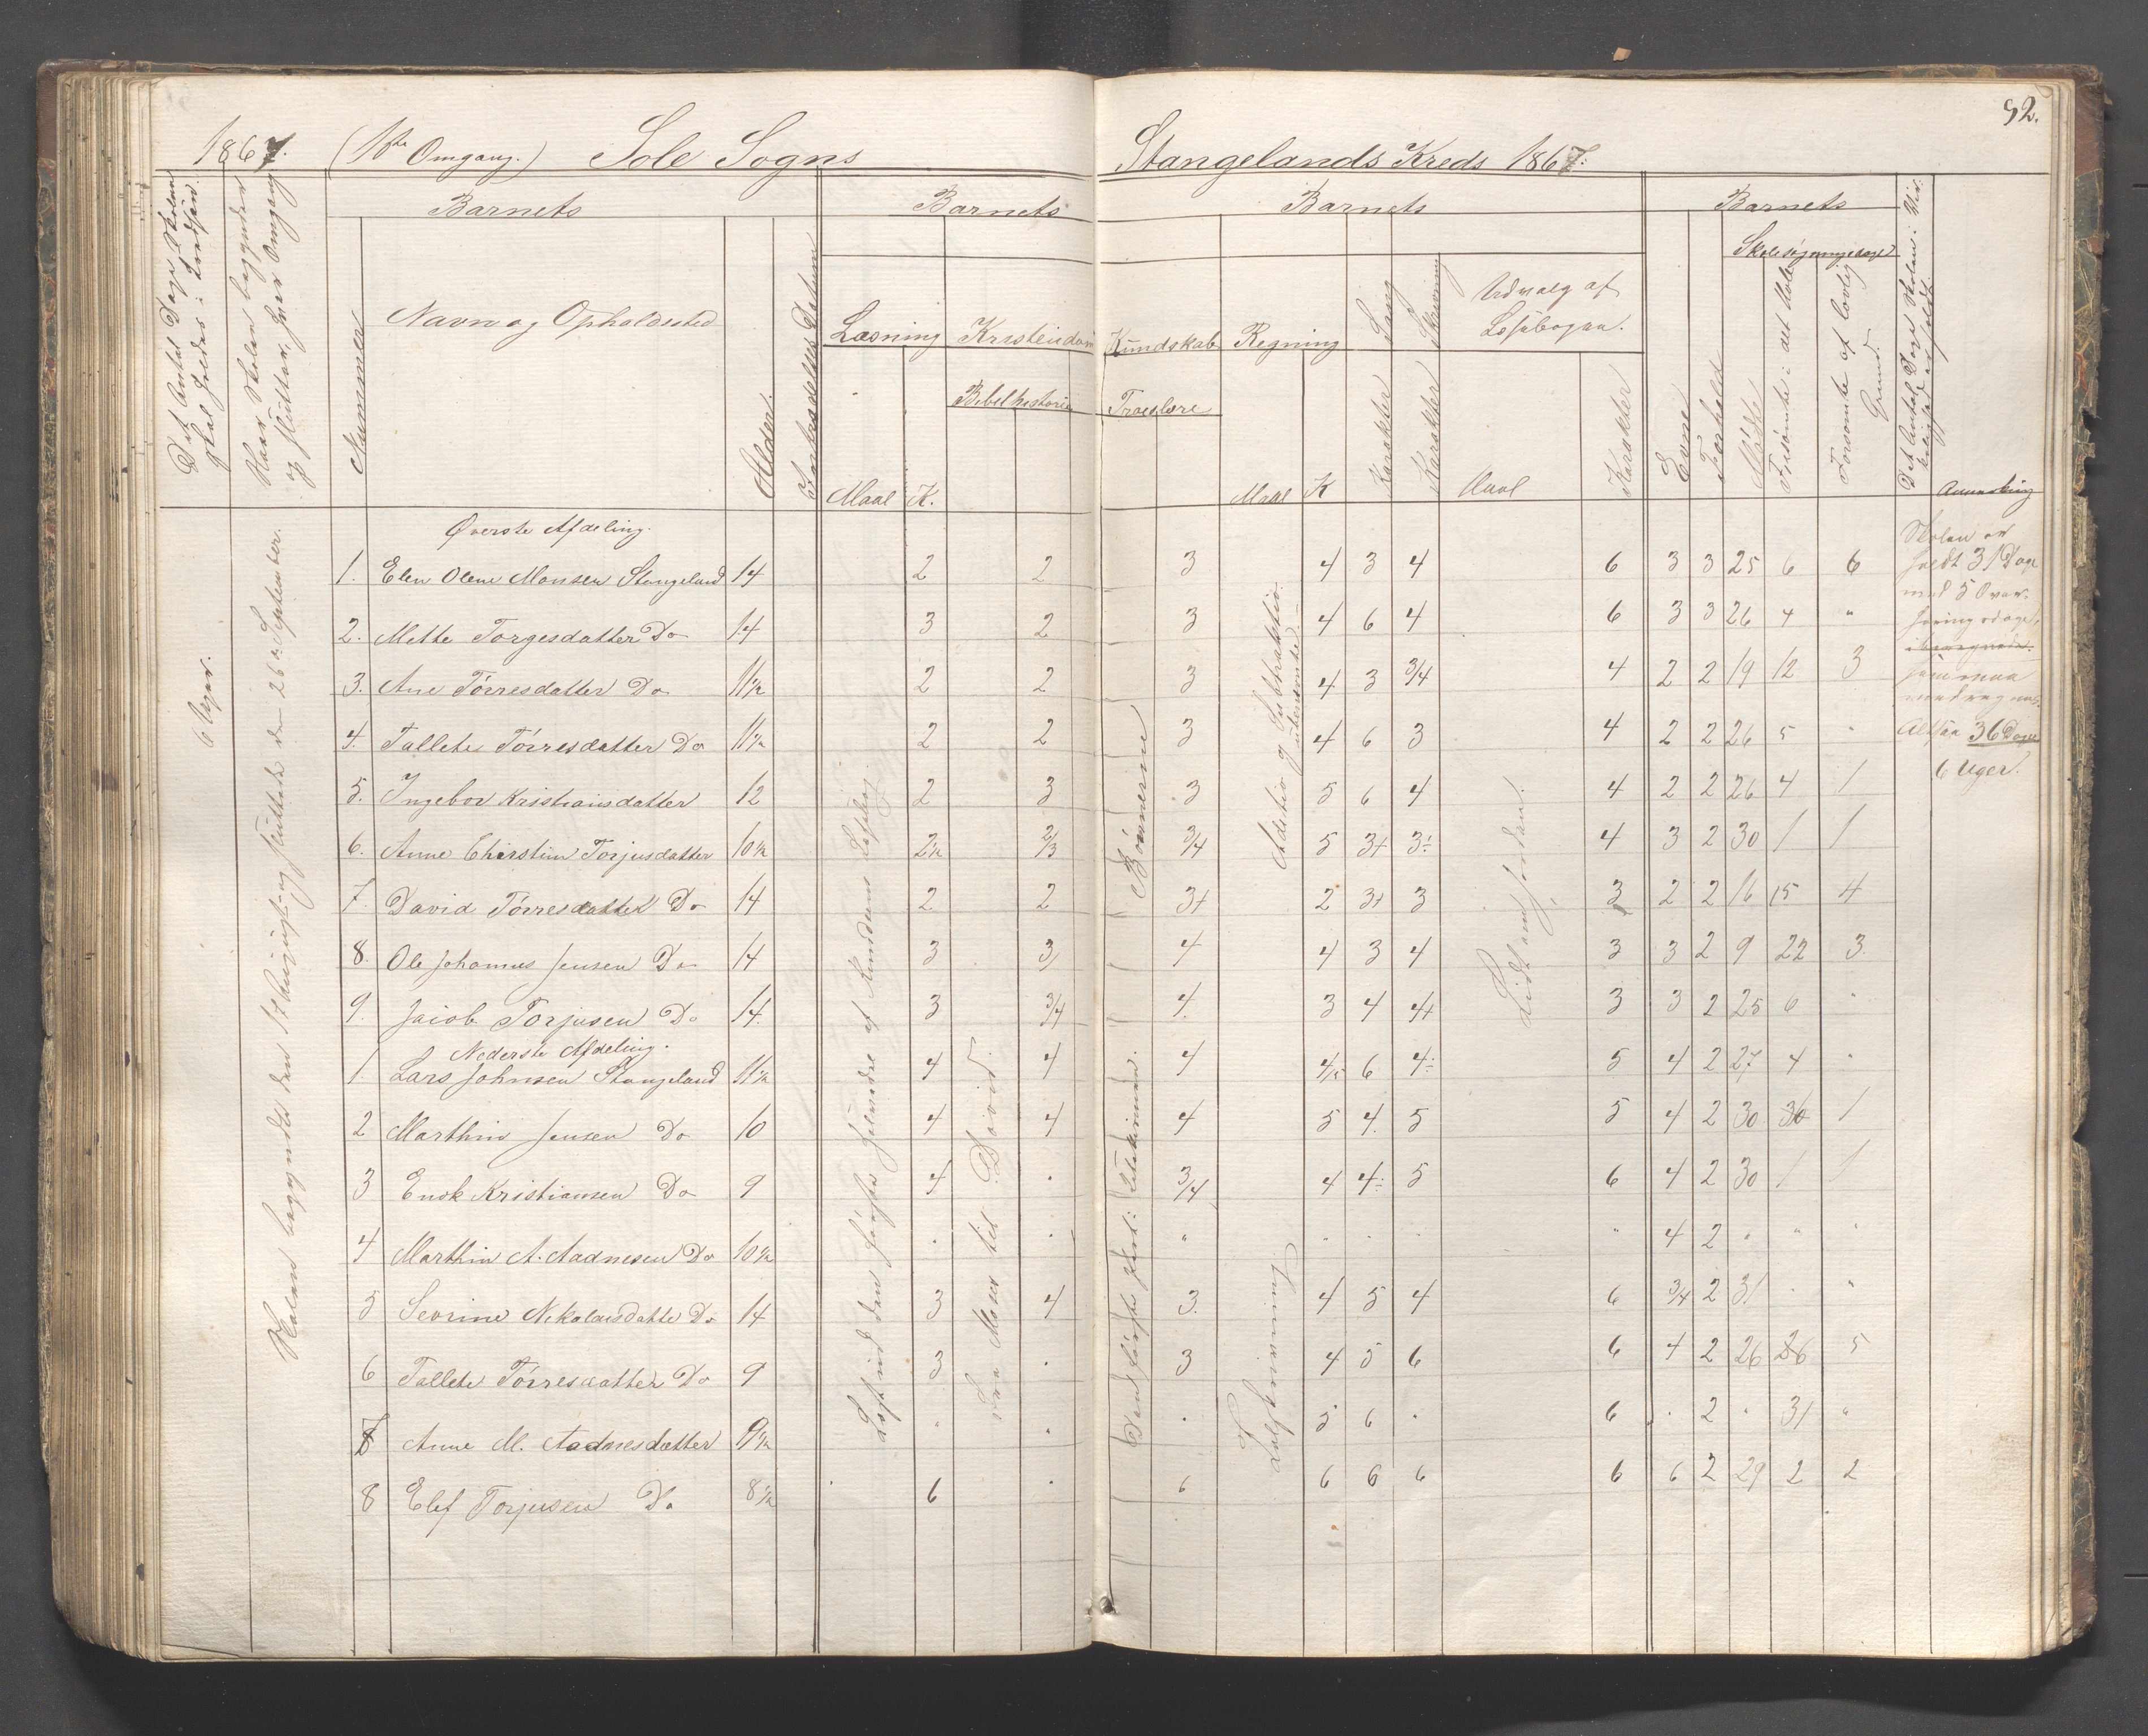 92.
1867. (1ste Omgang.) Sole Sogns Stangelands Kreds 1867:
Det Antal Dage Skolen skal holdes i Kredsen.
Naar Skolen begynder og slutter, hver Omgang
Barnets Barnets Barnets Barnets
Nummer
Navn og Opholdssted
Alder.
Datum
Læsning Kristendoms Kundskab Regning Sang Skrivning Udvalg af Læsebogen.
Bibelhistorie Troeslære
Maal K. Maal K Karakter Karakter Maal Karakter
Evne Forhold
Skolesøgningsdage
Mødte Forsømte i det Hele Forsømte af lovlig Grund.
Det Antal Dage Skolen i Virkelighed er holdt.
Anmærkning
6 Uger.
Skolen begyndte den 17 August og sluttede den 26 September.
Øverste Afdeling.
1. Elen Olene Monsen Stangeland 14 2 2 3 4 3 4 6 3 3 25 6 6
2. Mette Torgesdatter Do 14 3 2 3 4 6 4 6 3 3 26 4 "
3. Ane Tørresdatter Do 11½ 2 2 3 4 3 3/4 4 2 2 19 12 3
4. Tallete Tørresdatter Do 11½ 2 2 3 4 6 3 4 2 2 26 5 "
5. Ingebor Kristiansdatter 12 2 3 3 5 6 4 4 2 2 26 4 1
6. Anne Christine Torjusdatter 10½ 2½ 2/3 3/4 5 3+ 3÷ 4 3 2 30 1 1
7. David Tørresdatter Do 14 2 2 3+ 2 3+ 3 3 2 2 16 15 4
8. Ole Johannes Jensen Do 14 3 3 4 4 3 4 3 3 2 9 22 3.
9. Jacob Torjusen Do 14. 3 3/4 4. 3 4 4+ 3 3 2 25 6 "
Nederste Afdeling.
1. Lars Johnsen Stangeland 11½ 4 4 4 4/5 6 4÷ 5 4 2 27 4 "
2 Marthin Jensen Do 10 4 4 4 5 4. 5 5 4 2 30 30 1
3 Enok Kristiansen Do 9 4 . 3/4 4 4÷ 5 6 4 2 30 1 1
4 Marthin A. Aadnesen Do 10½ . . " . . . " 4 2 " " "
5 Sevrine Nikolaisdatte Do 14 3 4 3. 4 5 4 6 3/4 2 31 . "
6 Tallete Tørresdatter Do 9 3 . 3 4 5 6 6 4 2 26 26 5
7 Anne M. Aadnesdatter 9½ . . . 5 6 . 6 . 2 . 31 "
8 Elef Torjusen Do 8½ 6 . 6 6 6 6 6 6 2 29 2 2
Læst ind den første Halvdel af Knudsens Læsebog.
Fra Moses til David.
Den første Part i Katekismen.
Børnene
Addition og Subtraktion
Talskrivning
Lidt om Jorden.
Skolen er
holdt 31 Dage
med 5 Over-
høringsdage,
som maa
medregnes.
Altsaa 36 Dage
6 Uger.